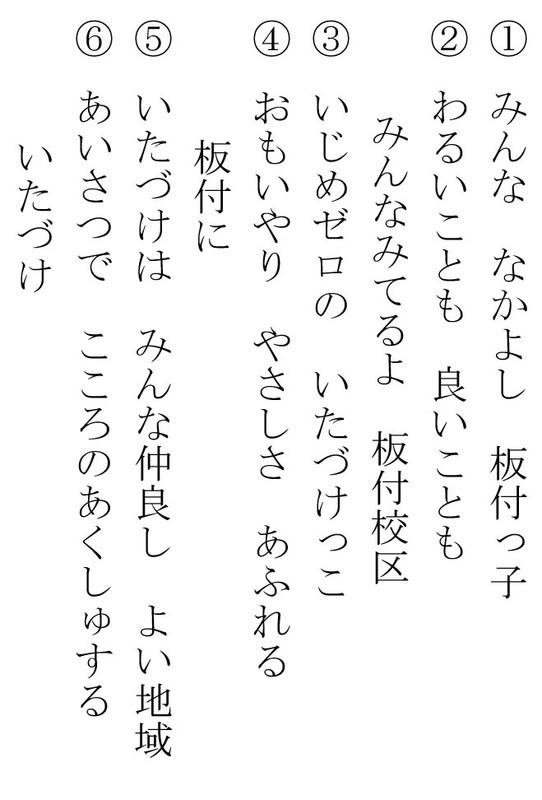 ① みんな なかよし 板付っ子
② わるいことも 良いことも
みんなみてるよ 板付校区
③ いじめゼロの いたづけっこ
④ おもいやり やさしさ あふれる
板付に
⑤ いたづけは みんな仲良し よい地域
⑥ あいさつで こころのあくしゅする
いたづけ